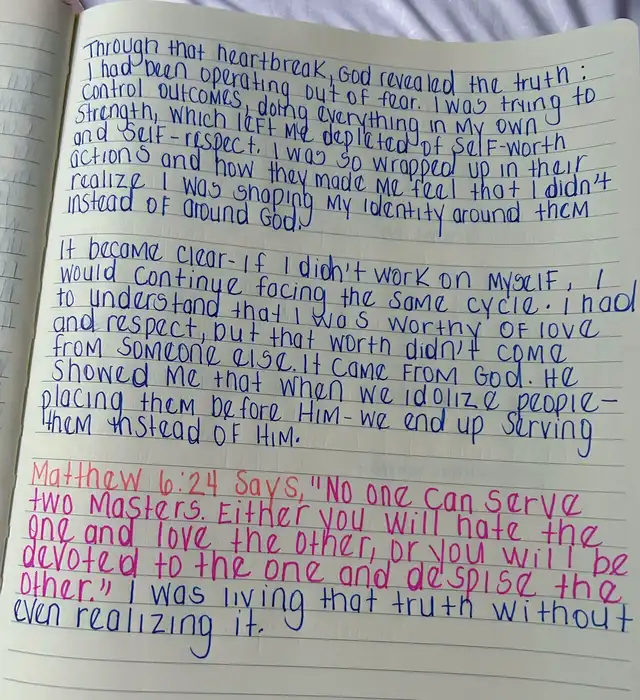 Through that heartbreak, God revealed the truth:
I had been operating out of fear. I was trying to
control outcomes, doing everything in my own
strength, which left me depleted of self-worth
and self-respect. I was so wrapped up in their
actions and how they made me feel that I didn't
realize I was shaping my identity around them
instead of around God.
It became clear- If I didn't work on myself, I
would continue facing the same cycle. I had
to understand that I was worthy of love
and respect, but that worth didn't come
from someone else. It came from God. He
showed me that when we idolize people-
placing them before Him-we end up serving
them instead of Him.
Matthew 6:24 says, "No one can serve
two Masters. Either you will hate the
one and love the other, or you will be
devoted to the one and despise the
other." I was living that truth without
even realizing it.